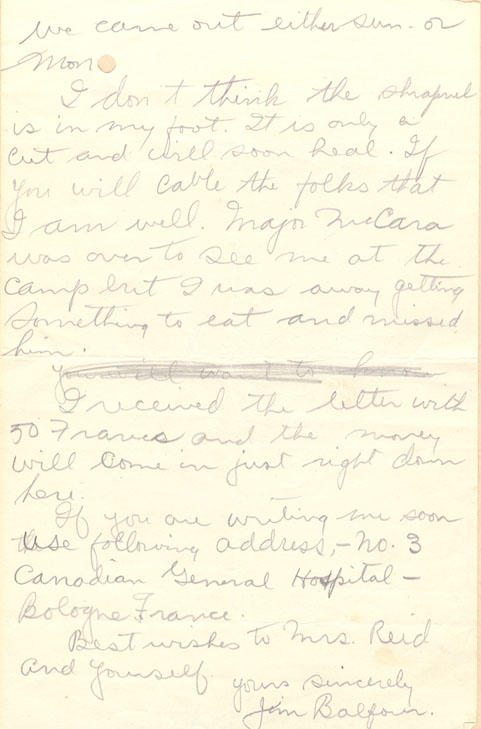 we came out either Sun. or
Mon
I don't think the shrapnel
is in my foot. It is only a
cut and will soon heal. If
you will cable the folks that
I am well. Major McCara
was over to see me at the
camp but I was away getting
something to eat and missed
him.
you will want to know
I received the letter with
50 Francs and the money
will come in just right down
here.
If you are writing me soon
use following address,- No. 3
Canadian General Hospital -
Bologne France.
Best wishes to Mrs. Reid
and yourself.
yours sincerely
Jim Balfour.